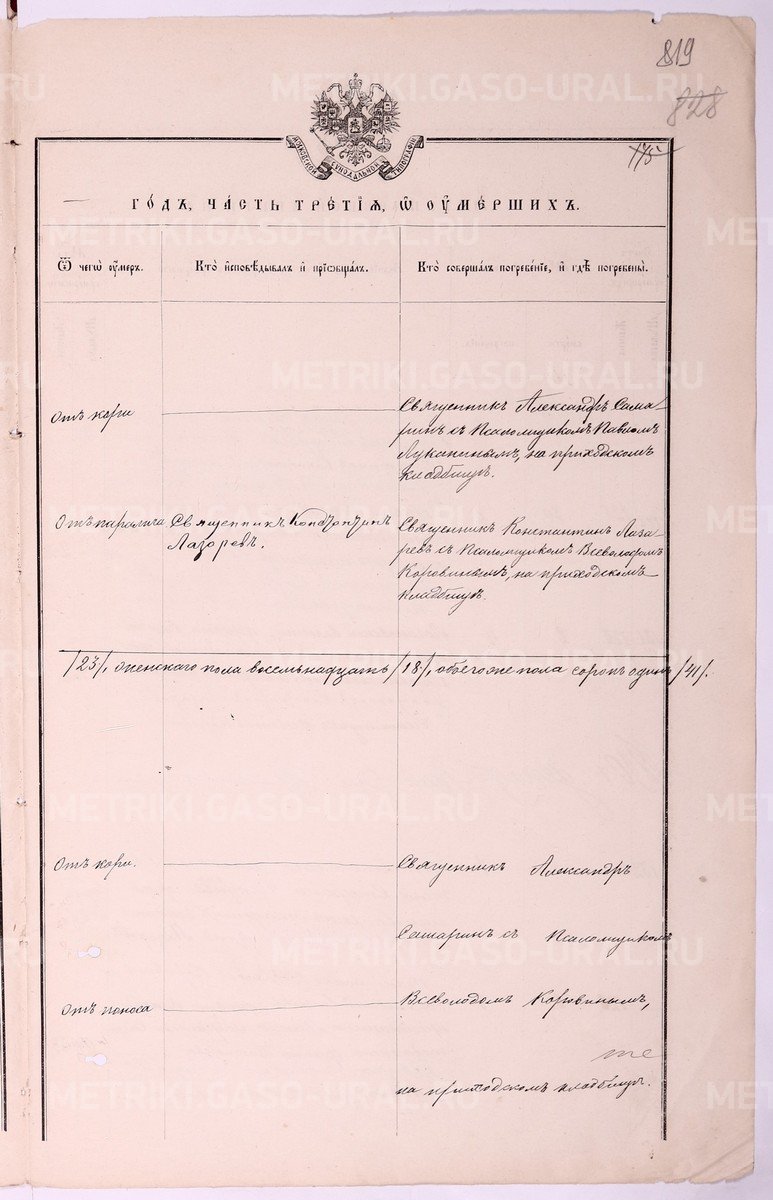 819
828
175
METRIKI.GASO-URAL.RU
МОСКОВСКОЙ СѴНОДАЛЬНОЙ ТИПОГРАФІИ
го́дъ, ча́сть тре́тїѧ, ѡ҆ ᲂу҆ме́ршихъ.
Ѿ чегѡ̀ ᲂу҆́меръ.
Кто̀ и҆сповѣ́дывалъ и҆ прїѡбща́лъ.
Кто̀ соверша́лъ погребе́нїе, и҆ гдѣ̀ погребены̀.
Отъ кори
Священникъ Александръ Сама-
ринъ съ Псаломщикомъ Павломъ
Лукаинымъ, на приходскомъ
кладбищѣ.
Отъ паралича
Священникъ Константинъ
Лазаревъ.
Священникъ Константинъ Лаза-
ревъ съ Псаломщикомъ Всеволодомъ
Коровинымъ, на приходскомъ
кладбищѣ.
/23/, женскаго пола восемьнадцать /18/, обоего же пола сорокъ одинъ /41/.
Отъ кори.
Священникъ Александръ
Самаринъ съ Псаломщикомъ
Отъ поноса
Всеволодомъ Коровинымъ,
на приходскомъ кладбищѣ.